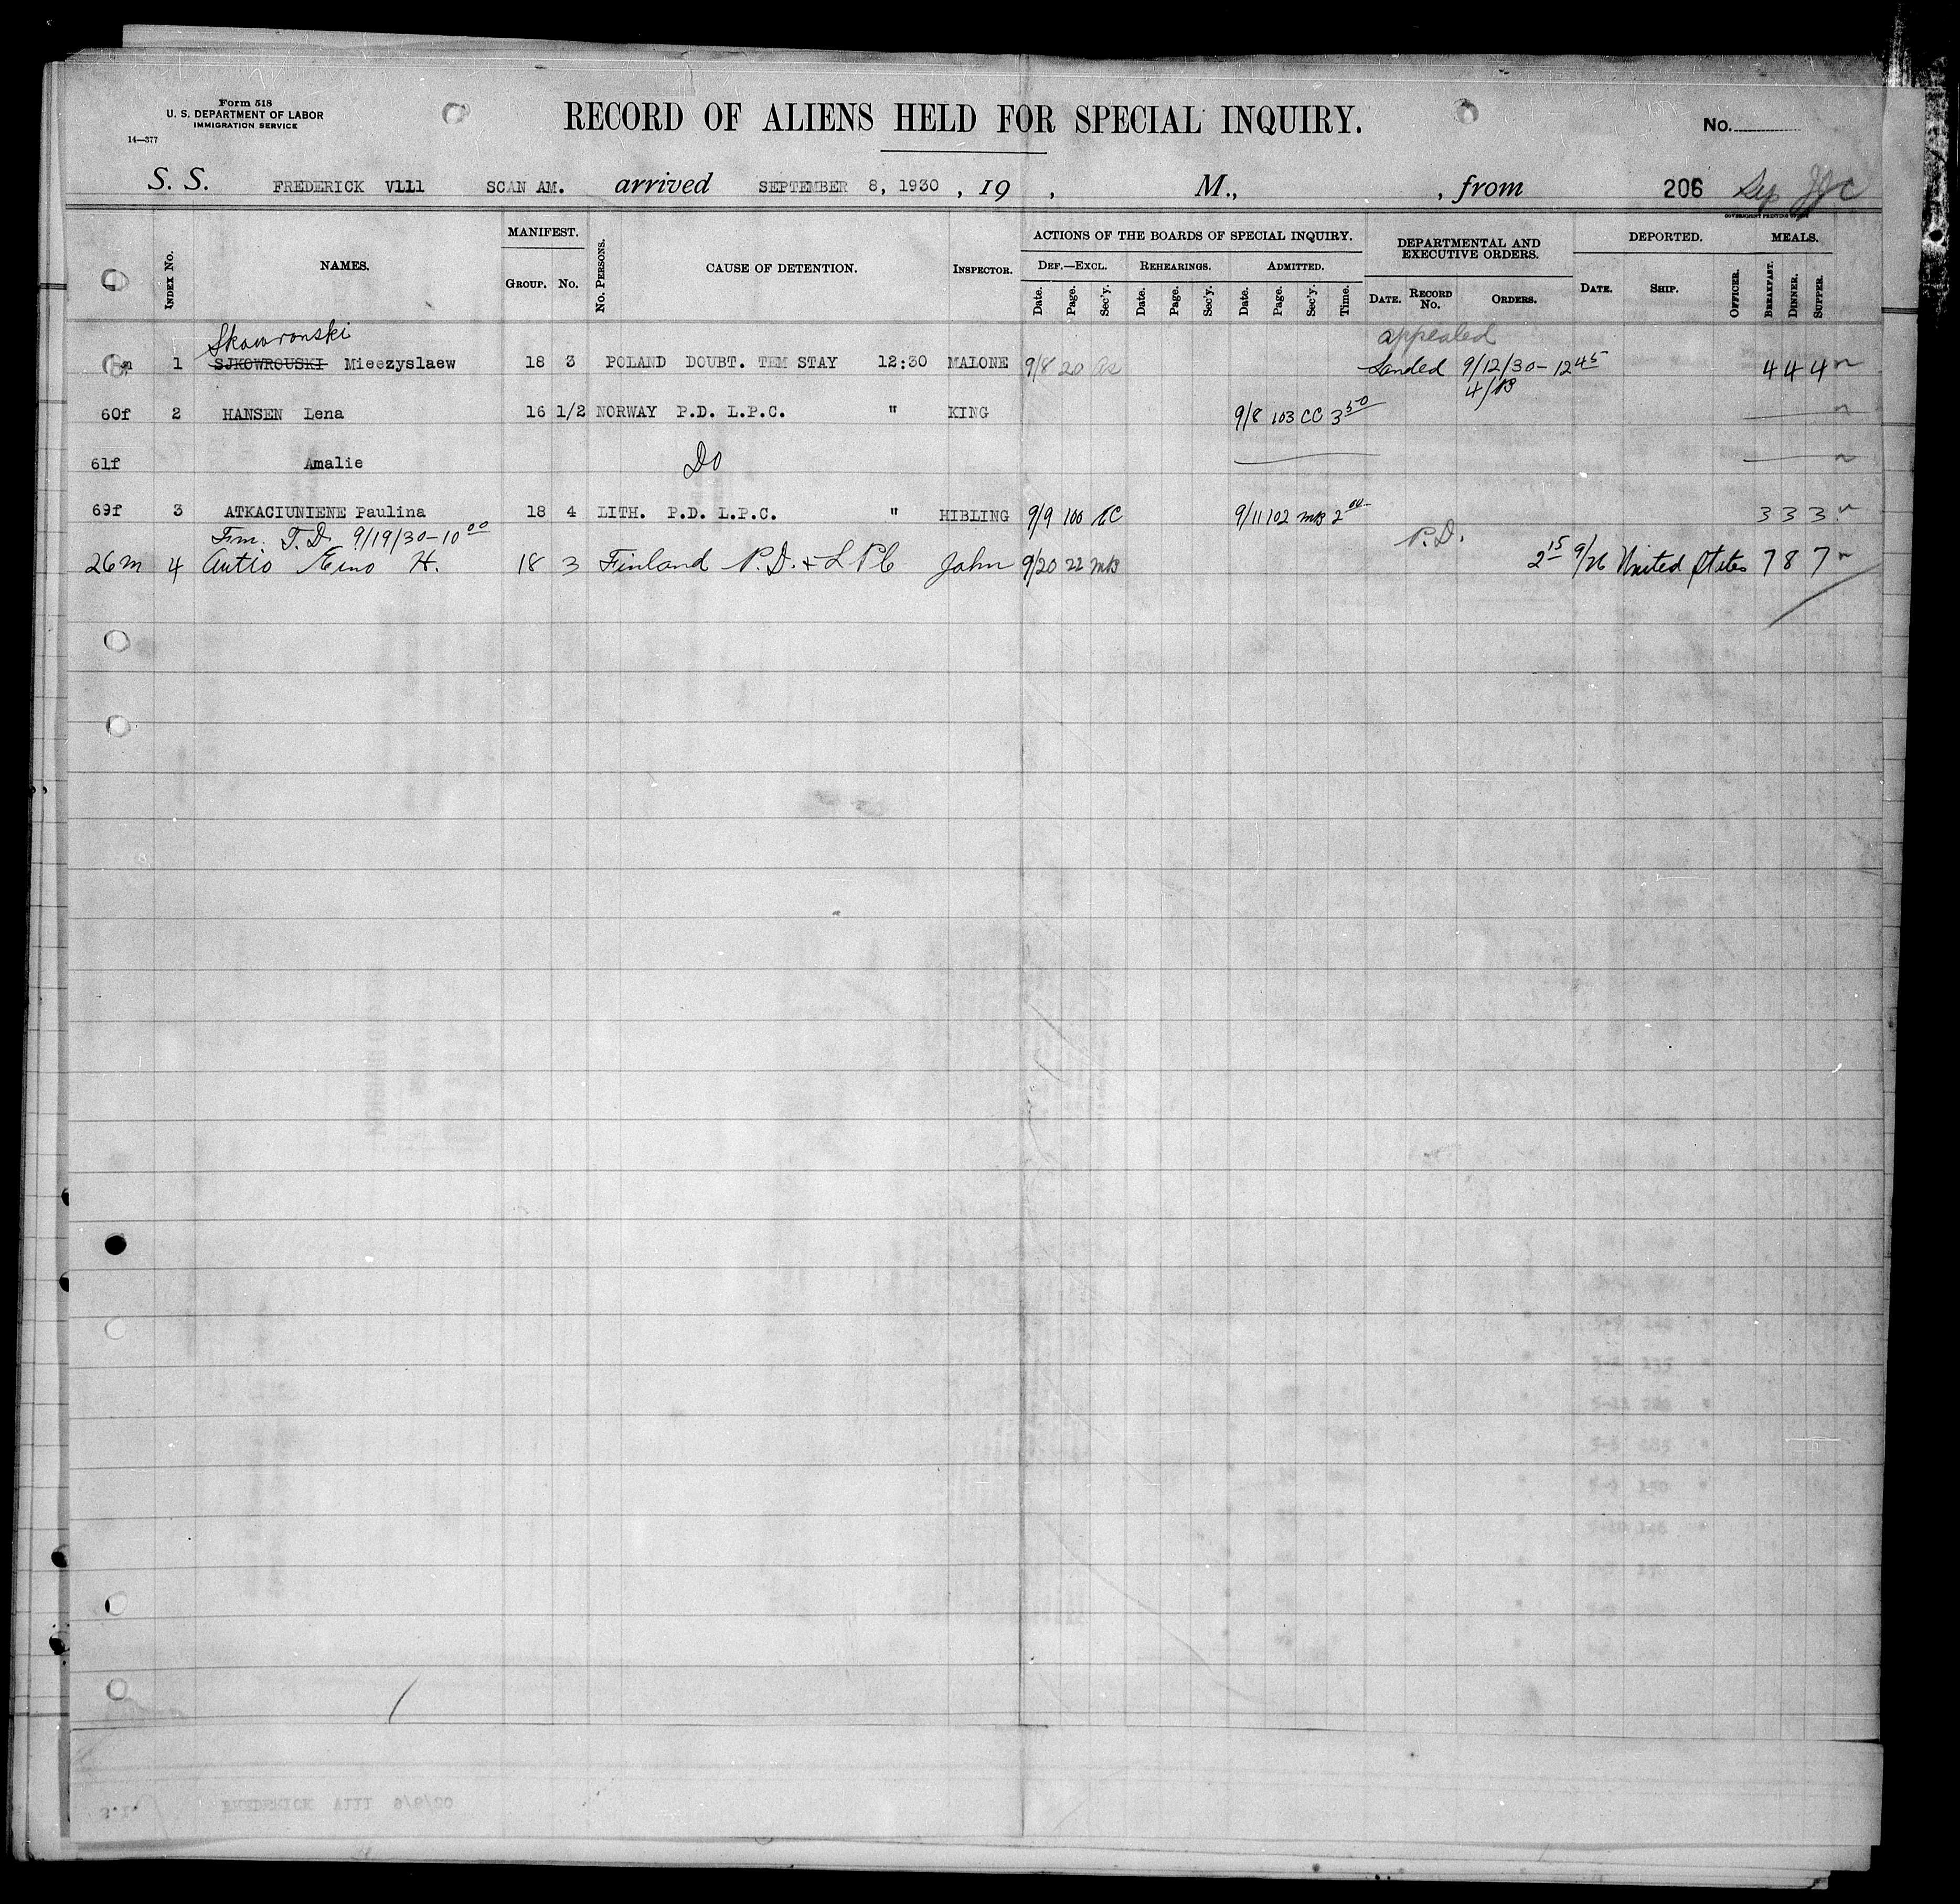 Form 518
U. S. DEPARTMENT OF LABOR
IMMIGRATION SERVICE
14—377
RECORD OF ALIENS HELD FOR SPECIAL INQUIRY.
No.
S. S. FREDERICK V111 SCAN AM. arrived SEPTEMBER 8, 1930 , 19 , M., , from 206
GOVERNMENT PRINTING OFFICE
INDEX NO. NAMES. MANIFEST. GROUP. NO. NO. PERSONS. CAUSE OF DETENTION. INSPECTOR. ACTIONS OF THE BOARDS OF SPECIAL INQUIRY. DEPARTMENTAL AND EXECUTIVE ORDERS. DEPORTED. MEALS.
DEF.—EXCL. REHEARINGS. ADMITTED.
Date. Page. Sec'y. Date. Page. Sec'y. Date. Page. Sec'y. Time. DATE. RECORD NO. ORDERS. DATE. SHIP. OFFICER. BREAKFAST. DINNER. SUPPER.
Skowronski appealed
1 SJKOWROUSKI Mieezyslaew 18 3 POLAND DOUBT. TEM STAY 12:30 MALONE 9/8 20 Landed 9/12/30 - 12 45 4 4 4
60f 2 HANSEN Lena 16 1/2 NORWAY P.D. L.P.C. " KING 9/8 103 CC 3 50
61f Amalie Do
69f 3 ATKACIUNIENE Paulina 18 4 LITH. P.D. L.P.C. " HIBLING 9/9 100 9/11 102 MB 2 00 3 3 3
Frm. T.D. 9/19/30 - 10 00 P.D.
26m 4 Autio Eino H. 18 3 Finland P.D. + L P C John 9/20 22 MB 2 15 9/26 United States 7 8 7